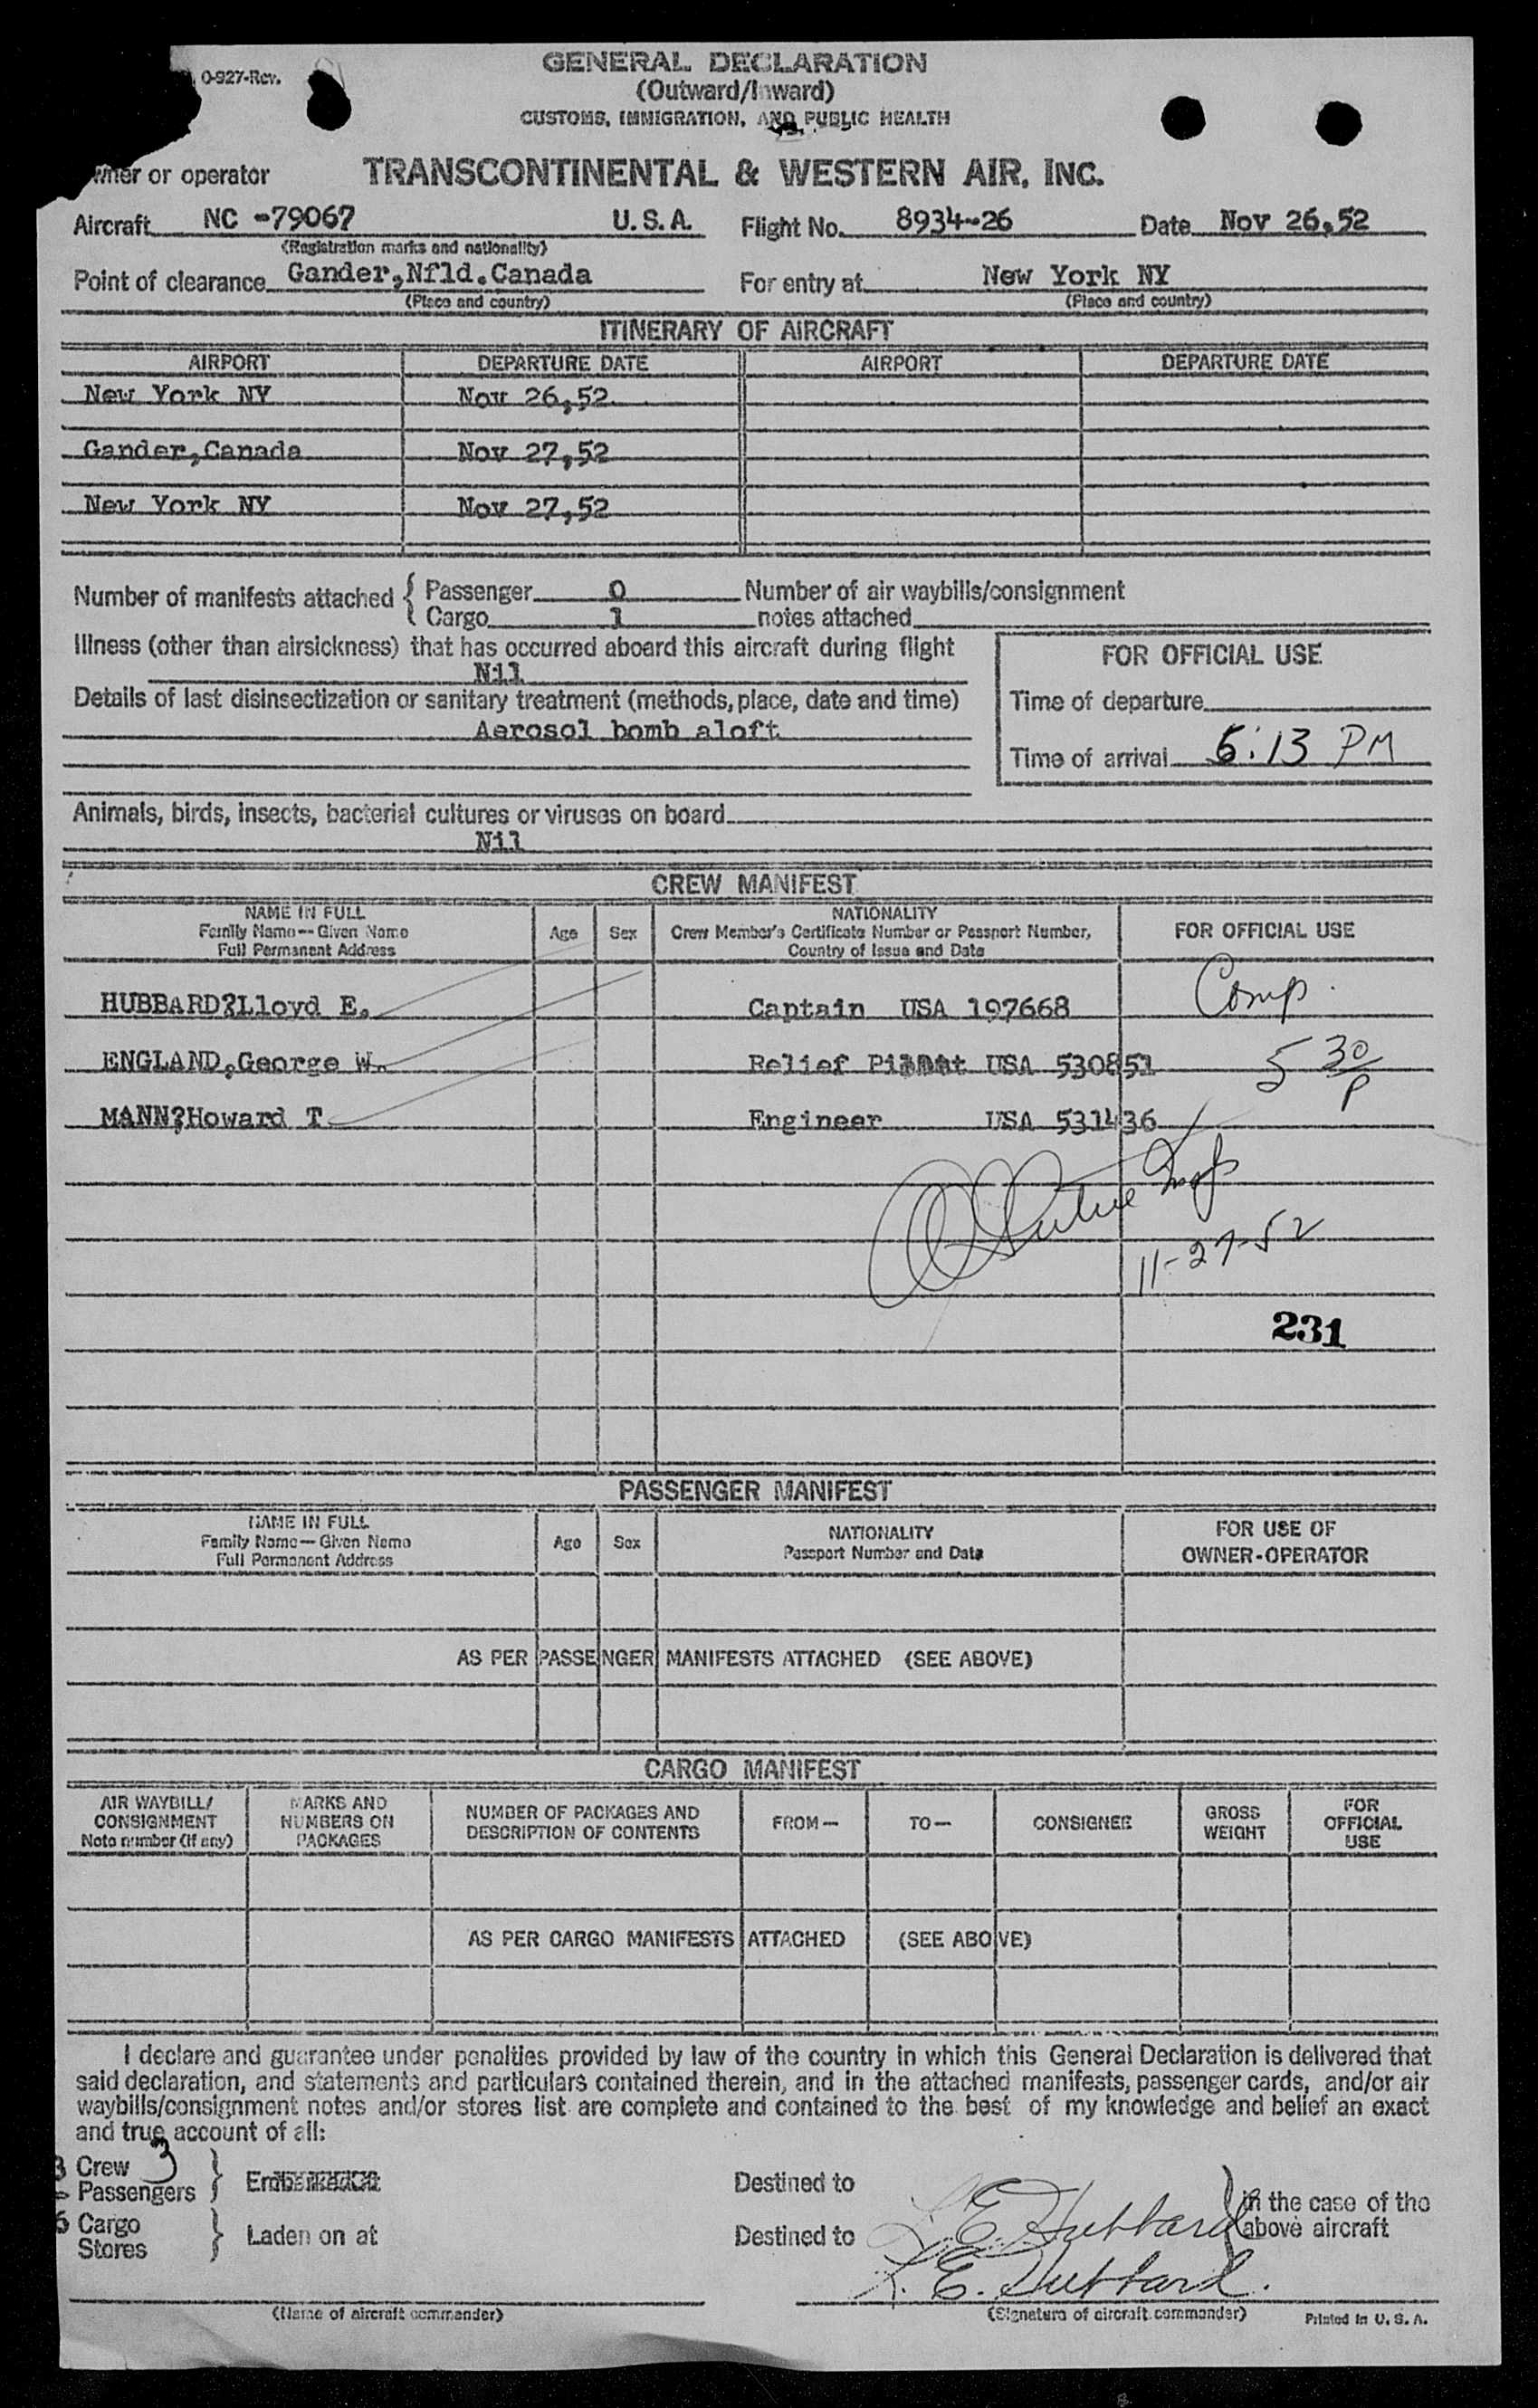 O-927-Rev.
GENERAL DECLARATION
(Outward/Inward)
CUSTOMS, IMMIGRATION, AND PUBLIC HEALTH
Owner or operator TRANSCONTINENTAL & WESTERN AIR, INC.
Aircraft NC -79067 U.S.A. Flight No. 8934-26 Date Nov 26,52
(Registration marks and nationality)
Point of clearance Gander,Nfld.Canada For entry at New York NY
(Place and country) (Place and country)
ITINERARY OF AIRCRAFT
AIRPORT DEPARTURE DATE AIRPORT DEPARTURE DATE
New York NY Nov 26,52
Gander,Canada Nov 27,52
New York NY Nov 27,52
Number of manifests attached { Passenger 0 Number of air waybills/consignment
Cargo 1 notes attached
Illness (other than airsickness) that has occurred aboard this aircraft during flight
Nil
FOR OFFICIAL USE
Details of last disinsectization or sanitary treatment (methods, place, date and time)
Aerosol bomb aloft
Time of departure
Time of arrival 6:13 PM
Animals, birds, insects, bacterial cultures or viruses on board
Nil
CREW MANIFEST
NAME IN FULL
Family Name--Given Name
Full Permanent Address
Age Sex
NATIONALITY
Crew Member's Certificate Number or Passport Number,
Country of Issue and Date
FOR OFFICIAL USE
HUBBARD?Lloyd E. Captain USA 197668 Comp.
ENGLAND,George W. Relief USA 530851 5 30/P
MANN?Howard T Engineer USA 531436
11-27-52
231
PASSENGER MANIFEST
NAME IN FULL
Family Name—Given Name
Full Permanent Address
Age Sex
NATIONALITY
Passport Number and Date
FOR USE OF
OWNER-OPERATOR
AS PER PASSENGER MANIFESTS ATTACHED (SEE ABOVE)
CARGO MANIFEST
AIR WAYBILL/
CONSIGNMENT
Note number (if any)
MARKS AND
NUMBERS ON
PACKAGES
NUMBER OF PACKAGES AND
DESCRIPTION OF CONTENTS
FROM—
TO—
CONSIGNEE
GROSS
WEIGHT
FOR
OFFICIAL
USE
AS PER CARGO MANIFESTS ATTACHED (SEE ABOVE)
I declare and guarantee under penalties provided by law of the country in which this General Declaration is delivered that
said declaration, and statements and particulars contained therein, and in the attached manifests, passenger cards, and/or air
waybills/consignment notes and/or stores list are complete and contained to the best of my knowledge and belief an exact
and true account of all:
3 Crew 3
Passengers } Destined to
6 Cargo
Stores } Laden on at Destined to
L. E. Hubbard
in the case of the
above aircraft
L. E. Hubbard.
(Name of aircraft commander) (Signature of aircraft commander) Printed in U. S. A.